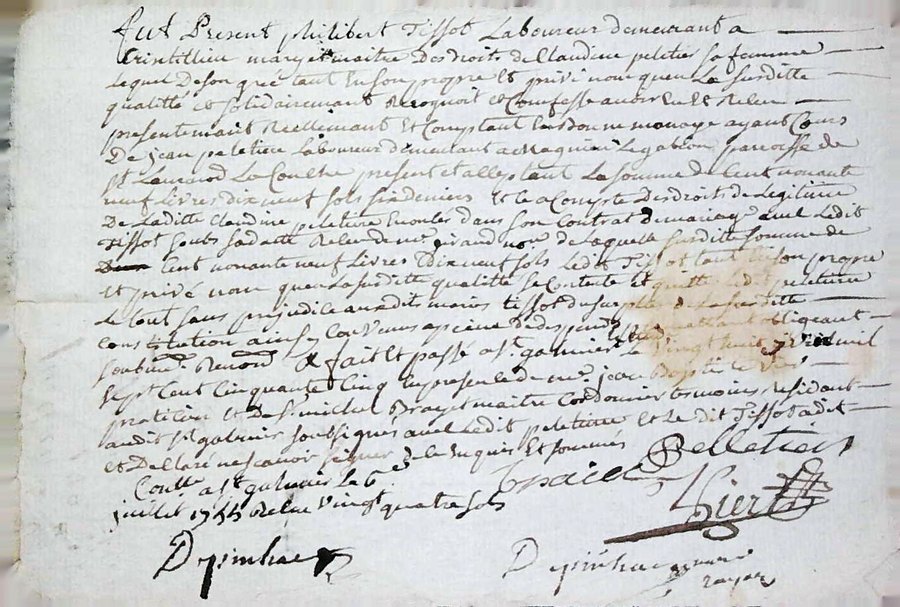 fut Present philibert Tissot Laboureur demeurant a
mary et maitre Des droits de Claudine peletier sa femme
Lequel De son gré tant En son propre Et privé nom quen La susditte
qualitté et solidairement Recognoit et Confesse avoir Eu Et Receu
presentemant Reellemant Et Comptant En bonne monoye ayant Cours
De jean peletier Laboureur demeurant a paroisse de
st present et acceptant La somme de Cent nonante
neuf Livres dix neuf sols six deniers Et Ce a Compte Des droits de Legitime
De Laditte Claudine peletier dans son Contrat de mariage avec Ledit
Tissot soubs sa datte Receu de me giraud nore De Laquelle susditte somme de
Cent nonante neuf Livres Dix neuf sols Ledit Tissot tant En son propre
Et privé nom quen La susditte qualitté se Contente Et quitte Ledit peletier
Le tout sans prejudice audit maries tissot du surplus de La susditte
constitution ainsy Convenus a peine De despens obligeant
soubmet Renond & fait et passé a st galmier Le vingt huit avril mil
sept Cent Cinquante Cinq En presence de me jean Baptiste
pratitien Et De sr michel maitre Cordonnier temoins, residant
audit st galmier soubsignés avec Ledit peletier Et Le dit Tissot a dit
Et Declaré ne scavoir signer de Ce Enquis Et sommes
Conttlé a st galmier Le 6e
juillet 1755 Receu vingt quatre sols
Pelletier
Depinhac
Depinhac